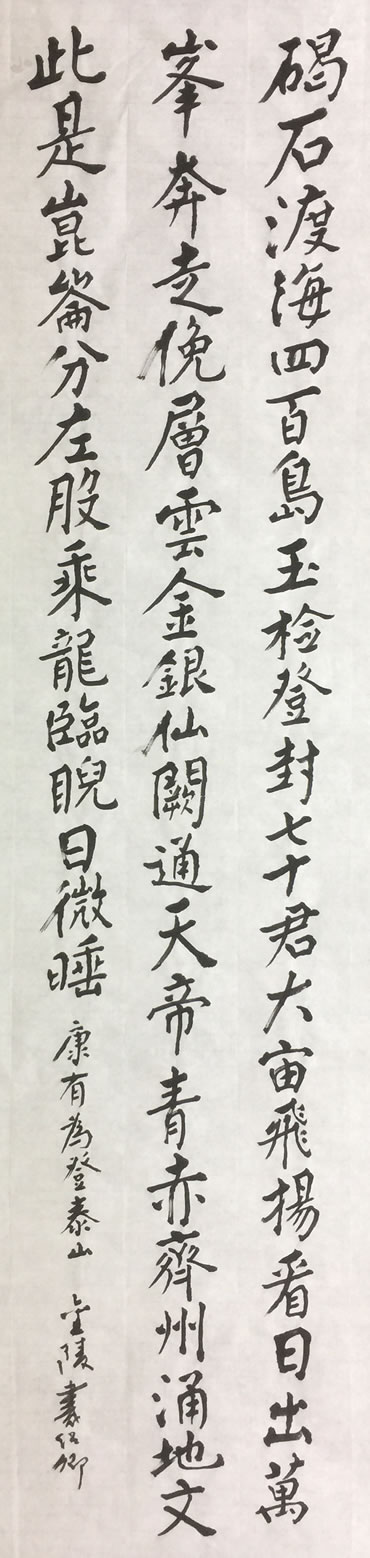 碣石渡海四百島玉检登封七十君大宙飛揚看日出萬
峯奔走俛層雲金銀仙闕通天帝青赤齊州涌地文
此是崑崙分左股乘龍臨睨日微睡
康有為登泰山 金陵書卿